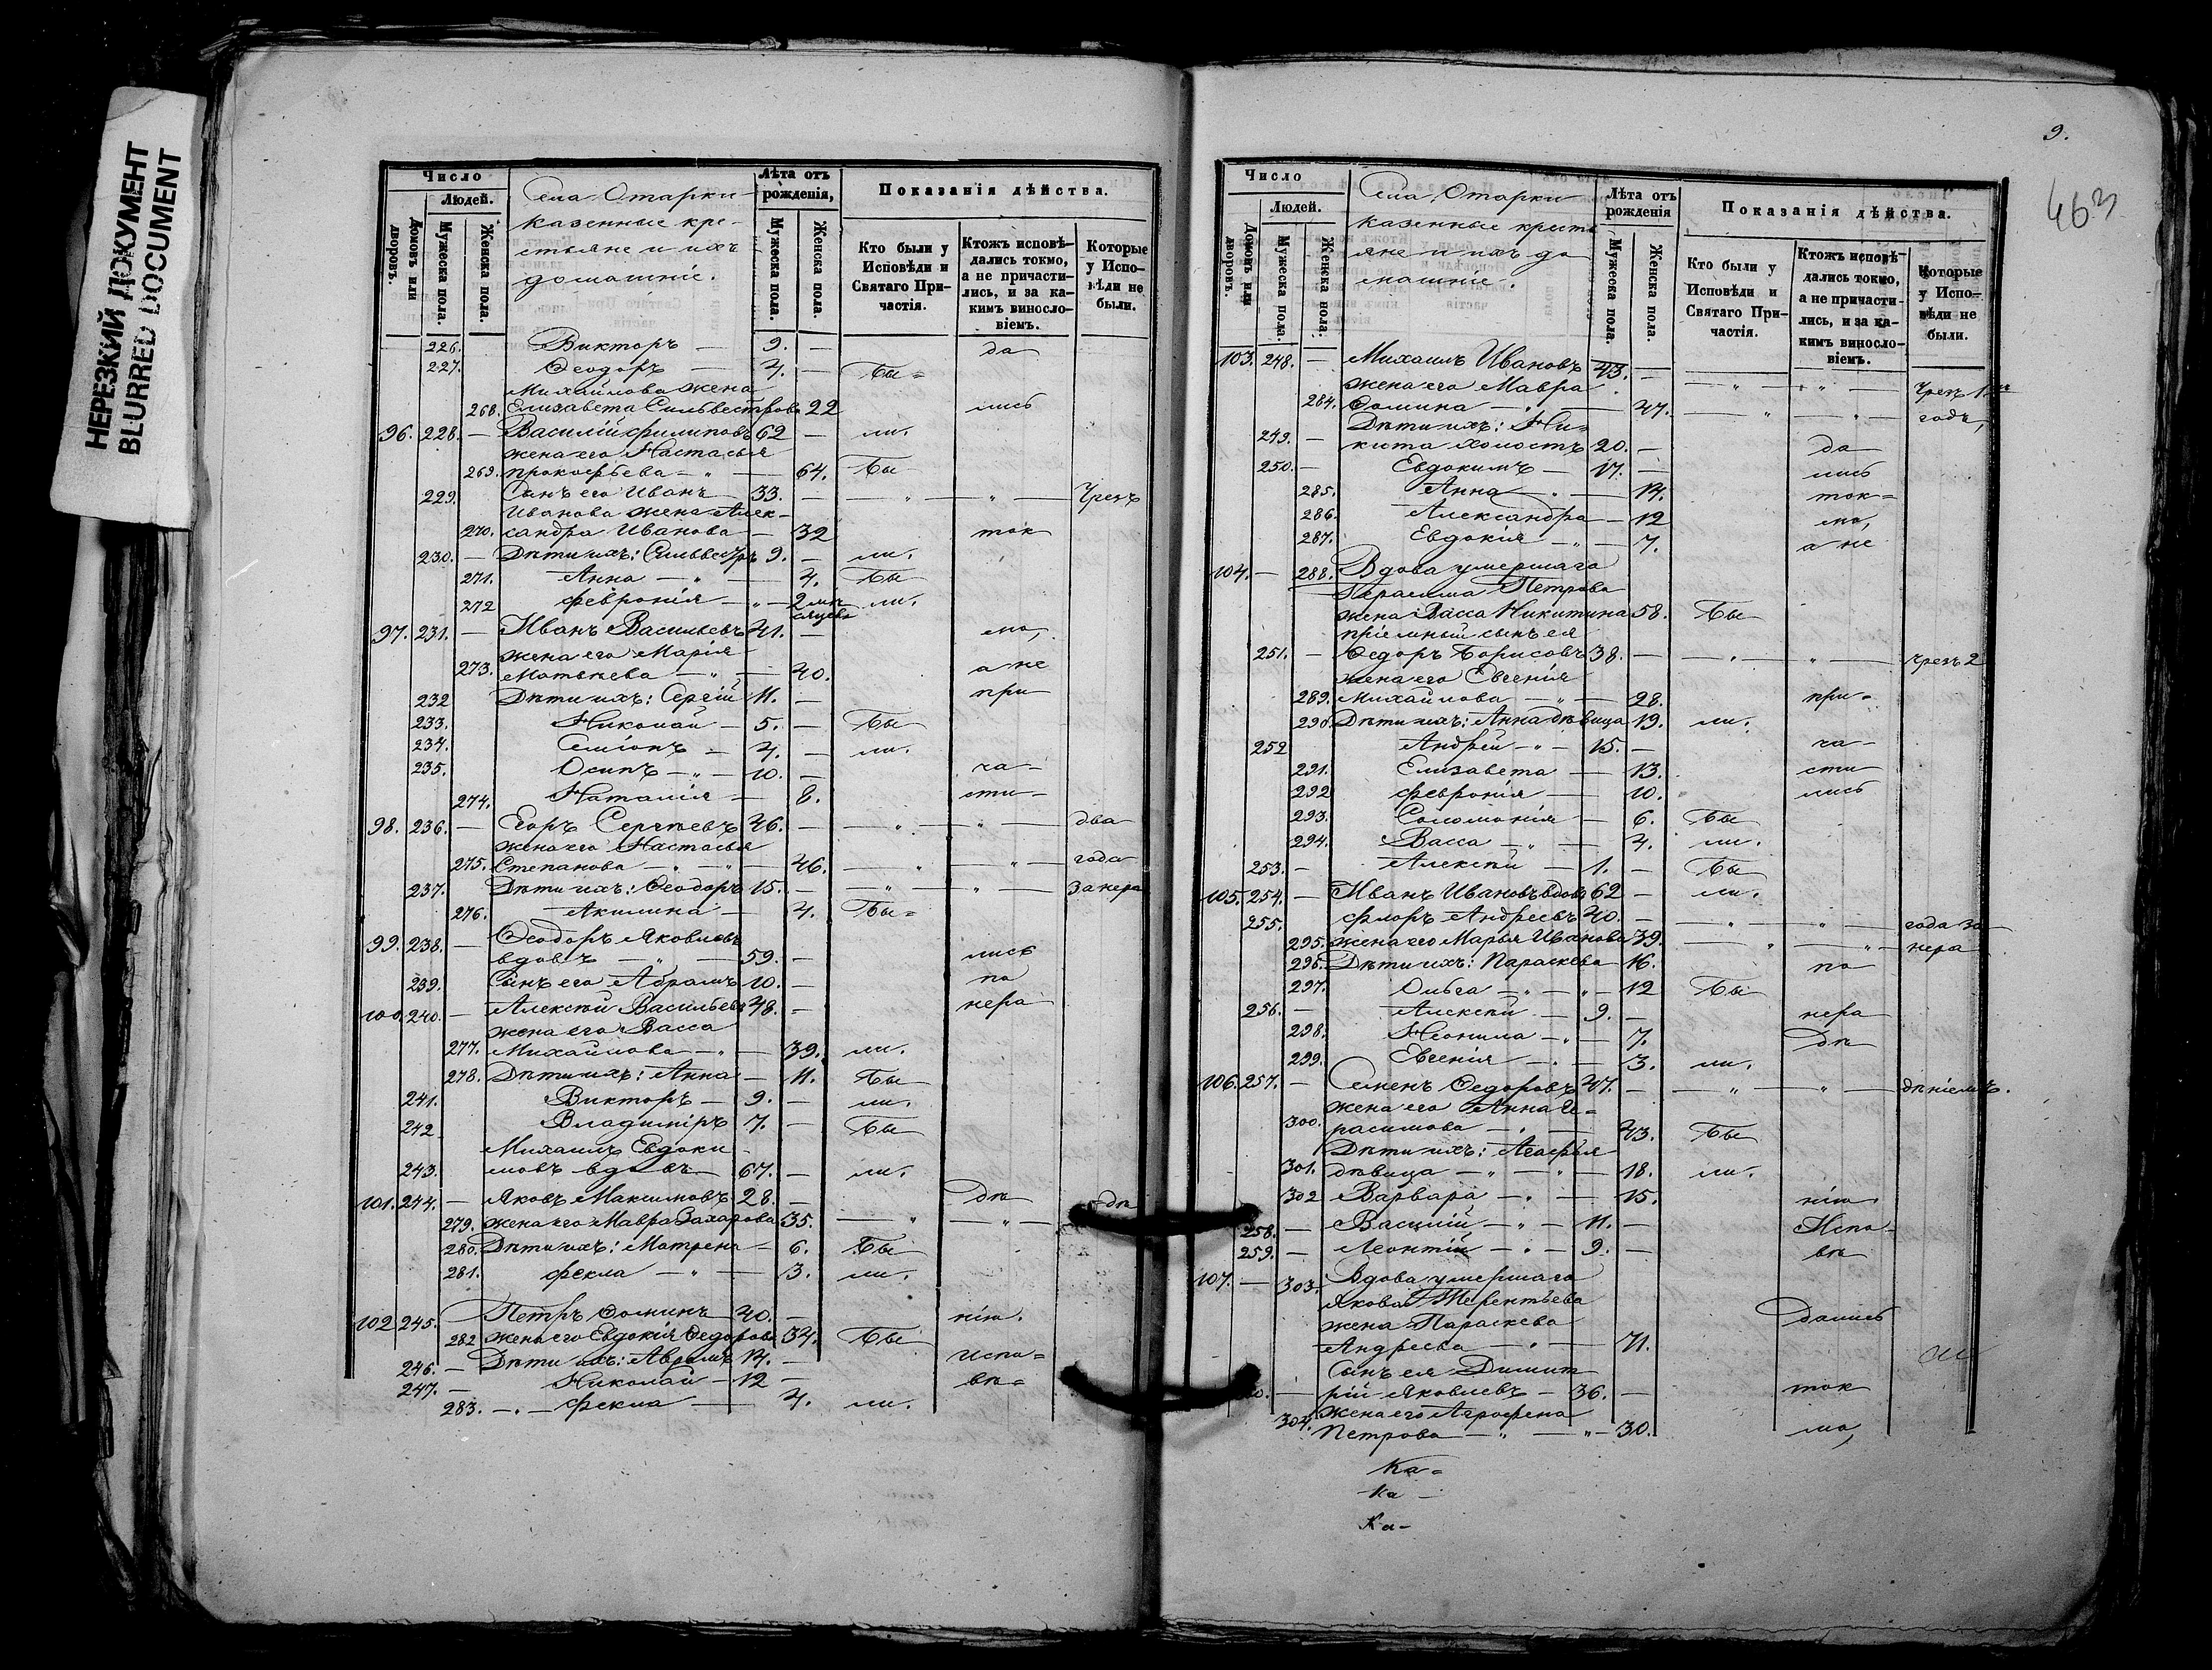 НЕРЕЗКИЙ ДОКУМЕНТ
BLURRED DOCUMENT
Число
Людей.
Домовъ или дворовъ.
Мужеска пола.
Женска пола.
Села Отарки
казенные кре-
стьяне и ихъ
домашніе.
Лѣта отъ рожденія,
Мужеска пола.
Женска пола.
Показанія дѣйства.
Кто были у Исповѣди и Святаго При-частія.
Ктожъ исповѣ-дались токмо, а не причасти-лись, и за ка-кимъ виносло-віемъ.
Которые у Испо-вѣди не были.
226. Викторъ — 9. — да
227. Ѳеодоръ — 4. — Бы=
Михайлова жена
268. Елизавета Сильвестрова 22 лись
96. 228. — Василій Филиповъ 62 — ли.
жена его Настасья
269. Прокофьева — " — 64. Бы
229. Сынъ его Иванъ 33. — " — " — Чрезъ
Иванова жена Алек-
270. сандра Иванова — 32 ток
230. — Дѣти ихъ: Сильвестръ 9. — ли.
271. Анна — " — 4. Бы
272 Февронія — " — 2 мѣ-
сяцевъ ли.
97. 231. — Иванъ Васильевъ 41. — мо,
жена его Марія
273. Матвѣева — " — 40. а не
232 Дѣти ихъ: Сергій 11. — при
233. Николай — 5. — Бы
234. Семіонъ — 4. — ли.
235. Осипъ — " — 10. — ча-
274. Наталія — 8. сти-
98. 236. — Егоръ Сергѣевъ 46. — " — " — два
жена его Настасья
275. Степанова — " — 46. — " — " — года
237. Дѣти ихъ: Ѳеодоръ 15. — " — " — за нера
276. Акилина — 4. Бы=
99. 238. — Ѳеодоръ Яковлевъ
вдовъ — " — 59. — лись
239. Сынъ его Абрамъ 10. — по
100. 240. — Алексѣй Васильевъ 48. — нера
жена его Васса
277. Михайлова — " — 39. ли.
278. Дѣти ихъ: Анна — 11. Бы
241. Викторъ — 9. — ли.
242 Владиміръ 7. — Бы
Михаилъ Евдоки-
243. мовъ вдовъ 67. — ли.
101. 244. — Яковъ Максимовъ 28. — дѣ дѣ
279. жена его Мавра Захарова 35. — " — " —
280. Дѣти ихъ: Матрена — 6. Бы
281. Фекла — " — 3. ли.
102 245. Петръ Ѳоминъ 40. — нію.
282 жена его Евдокія Ѳедорова 34. Бы
246. — Дѣти ихъ: Аврамъ 14. — испо=
247. — Николай — 12 — вѣ=
283. — " — Фекла — 4. ли.
9.
463
Число
Людей.
Домовъ или дворовъ.
Мужеска пола
Женска пола.
Села Отарки
казенные кресть
яне и ихъ до
машніе.
Лѣта отъ рожденія
Мужеска пола.
Женска пола.
Показанія дѣйства.
Кто были у Исповѣди и Святаго При-частія.
Ктожъ исповѣ-дались токмо, а не причасти-лись, и за ка-кимъ виносло-віемъ.
Которые у Испо-вѣди не были.
103. 248. — Михаилъ Ивановъ 43. —
жена его Мавра — " — " — Чрезъ 1
284. Ѳомина — " — 47. — " — " — годъ,
Дѣти ихъ: Ни-
249. — кита холостъ 20. — да
250. — Евдокимъ — 17. — лись
285. Анна — " — 14. ток=
286. Александра — 12 мо,
287. Евдокія — " — 7. а не
104. — 288. Вдова умершаго
Герасима Петрова
жена Васса Никитина 58. Бы
пріемный сынъ ея
251. — Ѳедоръ Борисовъ 38. — " — " — чрезъ 2
жена его Евгенія
289. Михайлова — " — 28. при=
290. Дѣти ихъ: Анна дѣвица 19. ли.
252 Андрей — " — 15. — ча-
291. Елизавета — 13. сти
292 Февронія — 10. лись
293. Соломонія — 6. Бы
294. Васса — " — 4. ли.
253. — Алексѣй — 1. — Бы
105. 254. — Иванъ Ивановъ вдовъ 62 — ли.
255. Флоръ Андреевъ 40. — " — " — года за
295. жена его Марья Иванова 39. — " — " — нера
296. Дѣти ихъ: Параскева — 16. по
297. Ольга — " — " — 12 Бы
256. — Алексѣй — 9. — нера
298. Неонила — " — 7. дѣ
299. Евгенія — " — 3. ли.
106. 257. — Семенъ Ѳедоровъ 47. — " — " — дѣніемъ.
жена его Анна Ге=
300. расимова — " — 43. Бы
Дѣти ихъ: Агафья
301. дѣвица — " — " — 18. ли.
302 Варвара — " — 15. нію
258. — Василій — " — 11. — Испо-
259. — Леонтій — " — 9. — вѣ
107. — 303. Вдова умершаго
Якова Терентьева
жена Параскева дались
Андреева — " — 71.
Сынъ ея Димит
рій Яковлевъ — 36. — ток
304. жена его Агрофена
Петрова — " — " — 30. мо,
Ка=
Ка-
Ка-